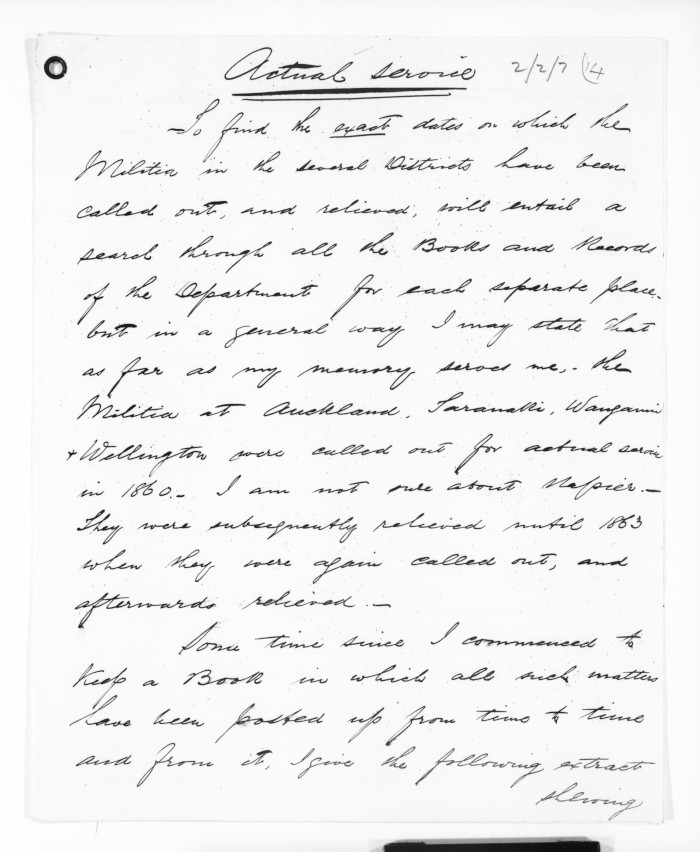 Actual service 2/2/7 (14
To find the exact dates on which the
Militia in the several Districts have been
called out, and relieved, will entail a
search through all the Books and Records
of the Department for each separate place.
but in a general way I may state that
as far as my memory serves me, - the
Militia at Auckland, Taranaki, Wanganui
+ Wellington were called out for actual service
in 1860. - I am not sure about Napier. -
They were subsequently relieved until 1863
when they were again called out, and
afterwards relieved. -
Some time since I commenced to
keep a Book in which all such matters
have been posted up from time to time
and from it, I give the following extract
shewing